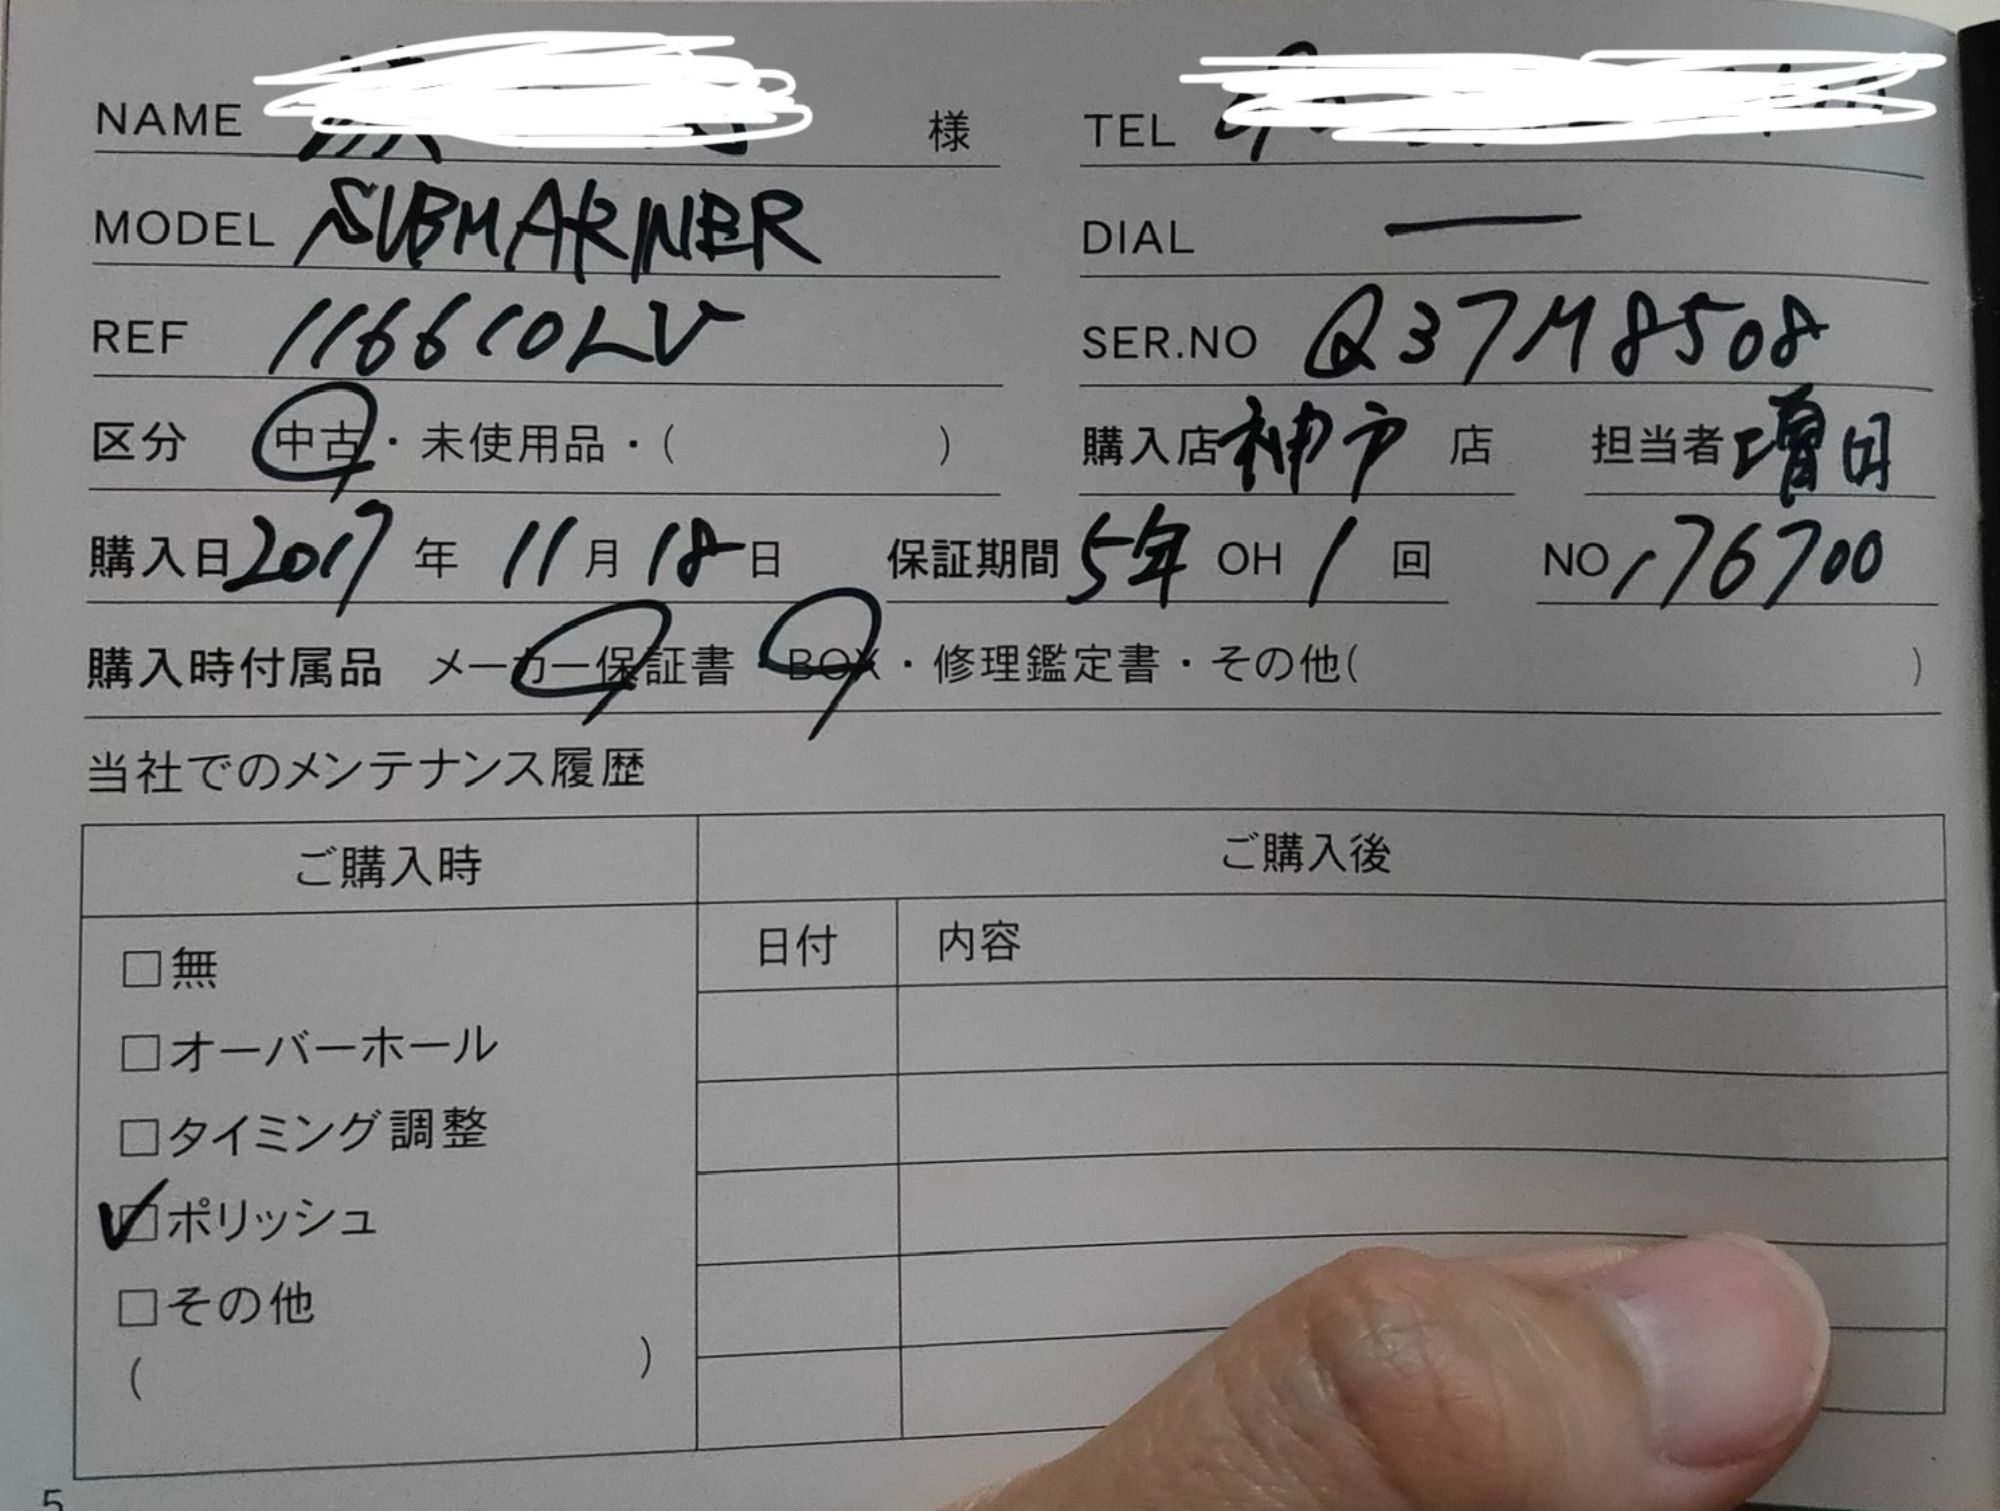 NAME 様 TEL
MODEL SUBMARINER DIAL —
REF 116610LV SER.NO Q37M8508
区分 中古・未使用品・( ) 購入店 神戸 店 担当者 増田
購入日 2017 年 11 月 18 日 保証期間 5年 OH 1 回 NO 176700
購入時付属品 メーカー保証書・BOX・修理鑑定書・その他( )
当社でのメンテナンス履歴
ご購入時 ご購入後
日付 内容
□無
□オーバーホール
□タイミング調整
☑ポリッシュ
□その他
( )
5